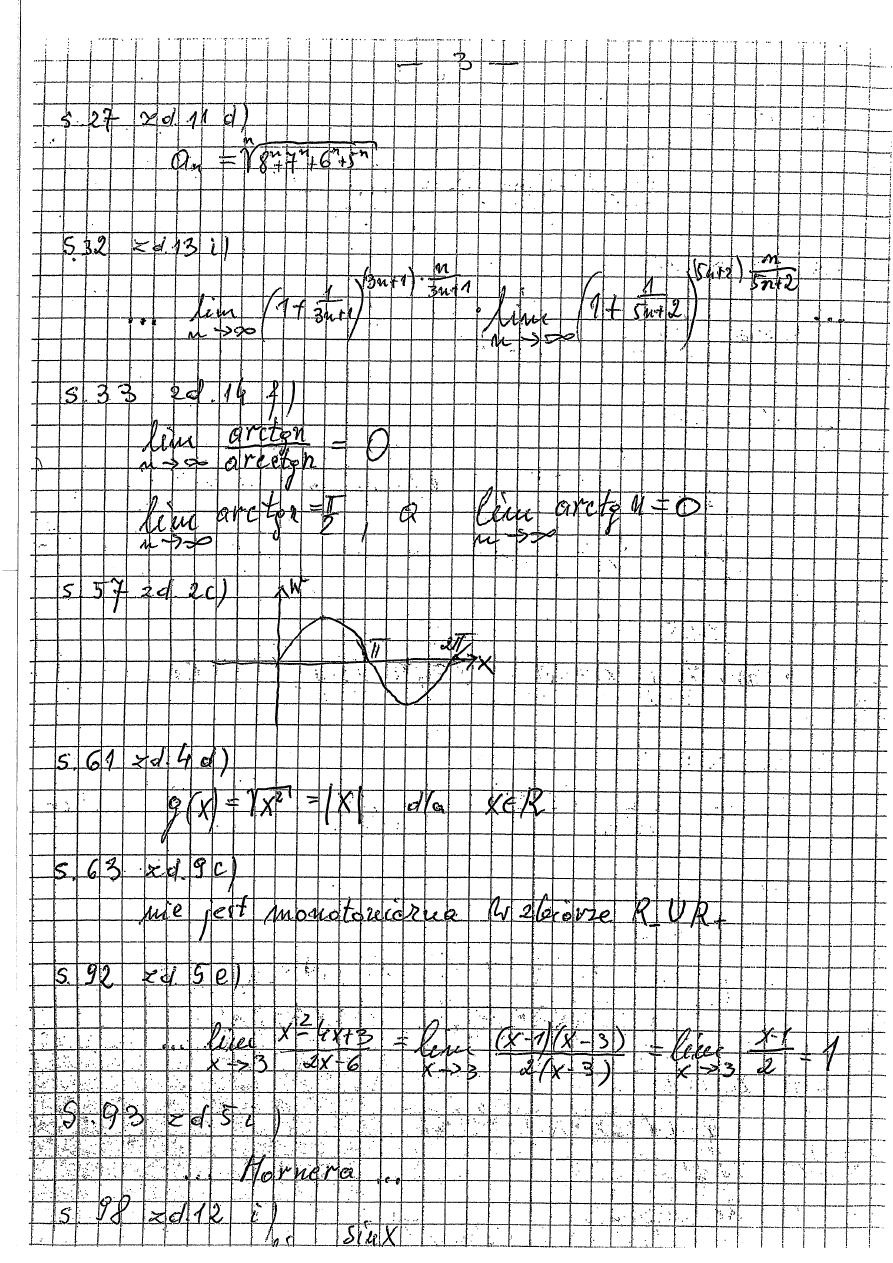 — 3 —
s.27 zd.11 d)
aₙ = ⁿ√(8ⁿ+7ⁿ+6ⁿ+5ⁿ)
s.32 zd.13 i)
... lim n→∞ (1+ 1/(3n+1))^((3n+1)·n/(3n+1)) · lim n→∞ (1+ 1/(5n+2))^((5n+2) n/(5n+2)) ...
s.33 zd.14 f)
lim n→∞ arctgn/arcctgn = 0
lim n→∞ arctgn = π/2 , a lim n→∞ arctg n = 0
s 57 zd. 2c)
W
π 2π X
s.61 zd.4 d)
g(x) = √x² = |x| dla x∈R
s.63 zd.9 c)
nie jest monotoniczna w zbiorze R_UR+
s.92 zd 5 e)
... lim x→3 (x²-4x+3)/(2x-6) = lim x→3 (x-1)(x-3)/2(x-3) = lim x→3 (x-1)/2 = 1
S.93 zd.5 i)
... Hornera ...
s.98 zd.12 i)
.. sinx